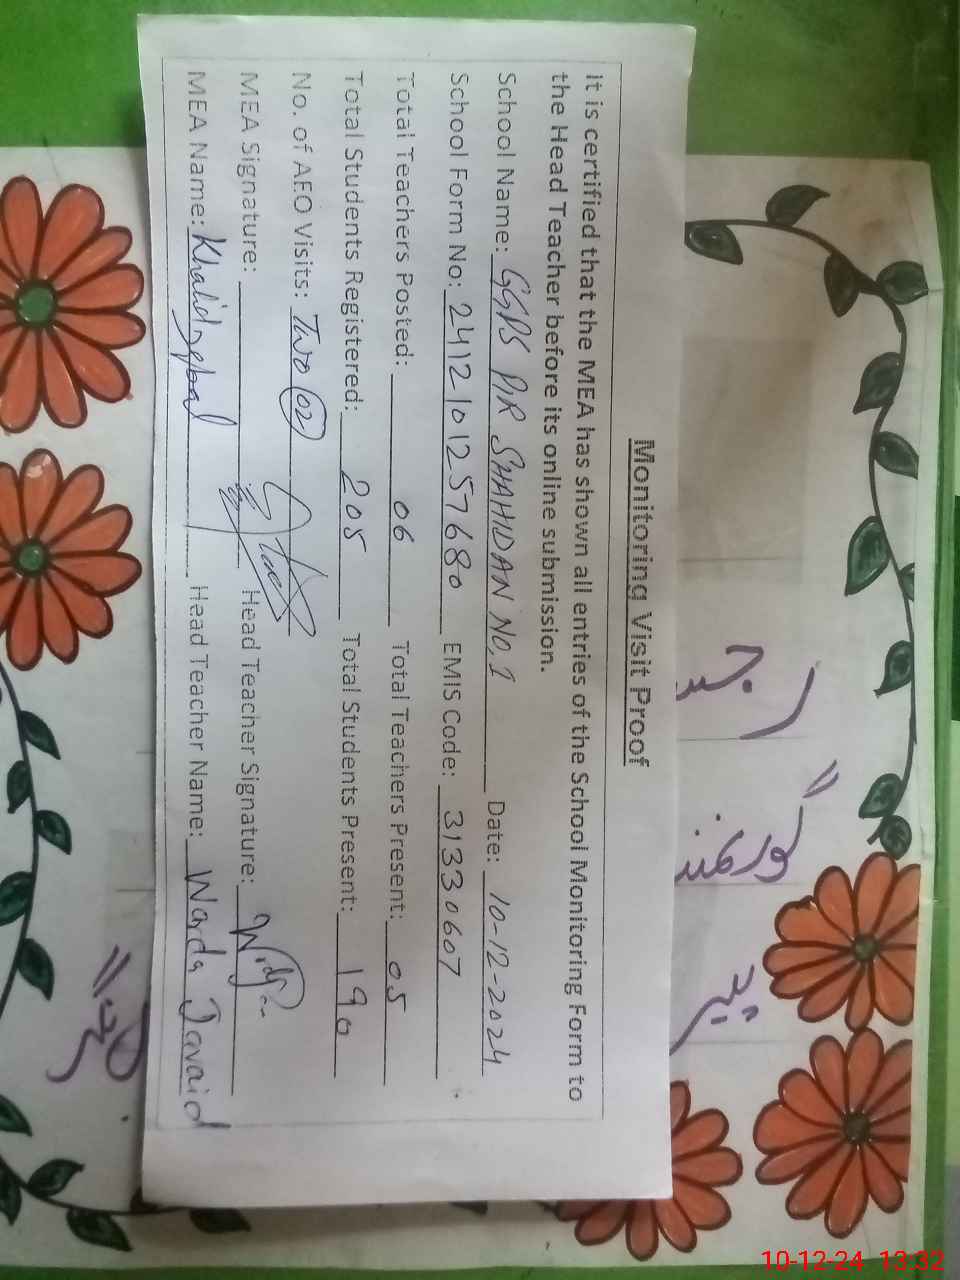 Monitoring Visit Proof
It is certified that the MEA has shown all entries of the School Monitoring Form to
the Head Teacher before its online submission.
School Name: GGPS PIR SHAHIDAN NO,1 Date: 10-12-2024
School Form No: 2412101257680 EMIS Code: 31330607
Total Teachers Posted: 06 Total Teachers Present: 05
Total Students Registered: 205 Total Students Present: 190
No. of AEO Visits: Two (02)
MEA Signature: Head Teacher Signature:
MEA Name: Khalid Iqbal Head Teacher Name: Warda Javaid
10-12-24 13:32